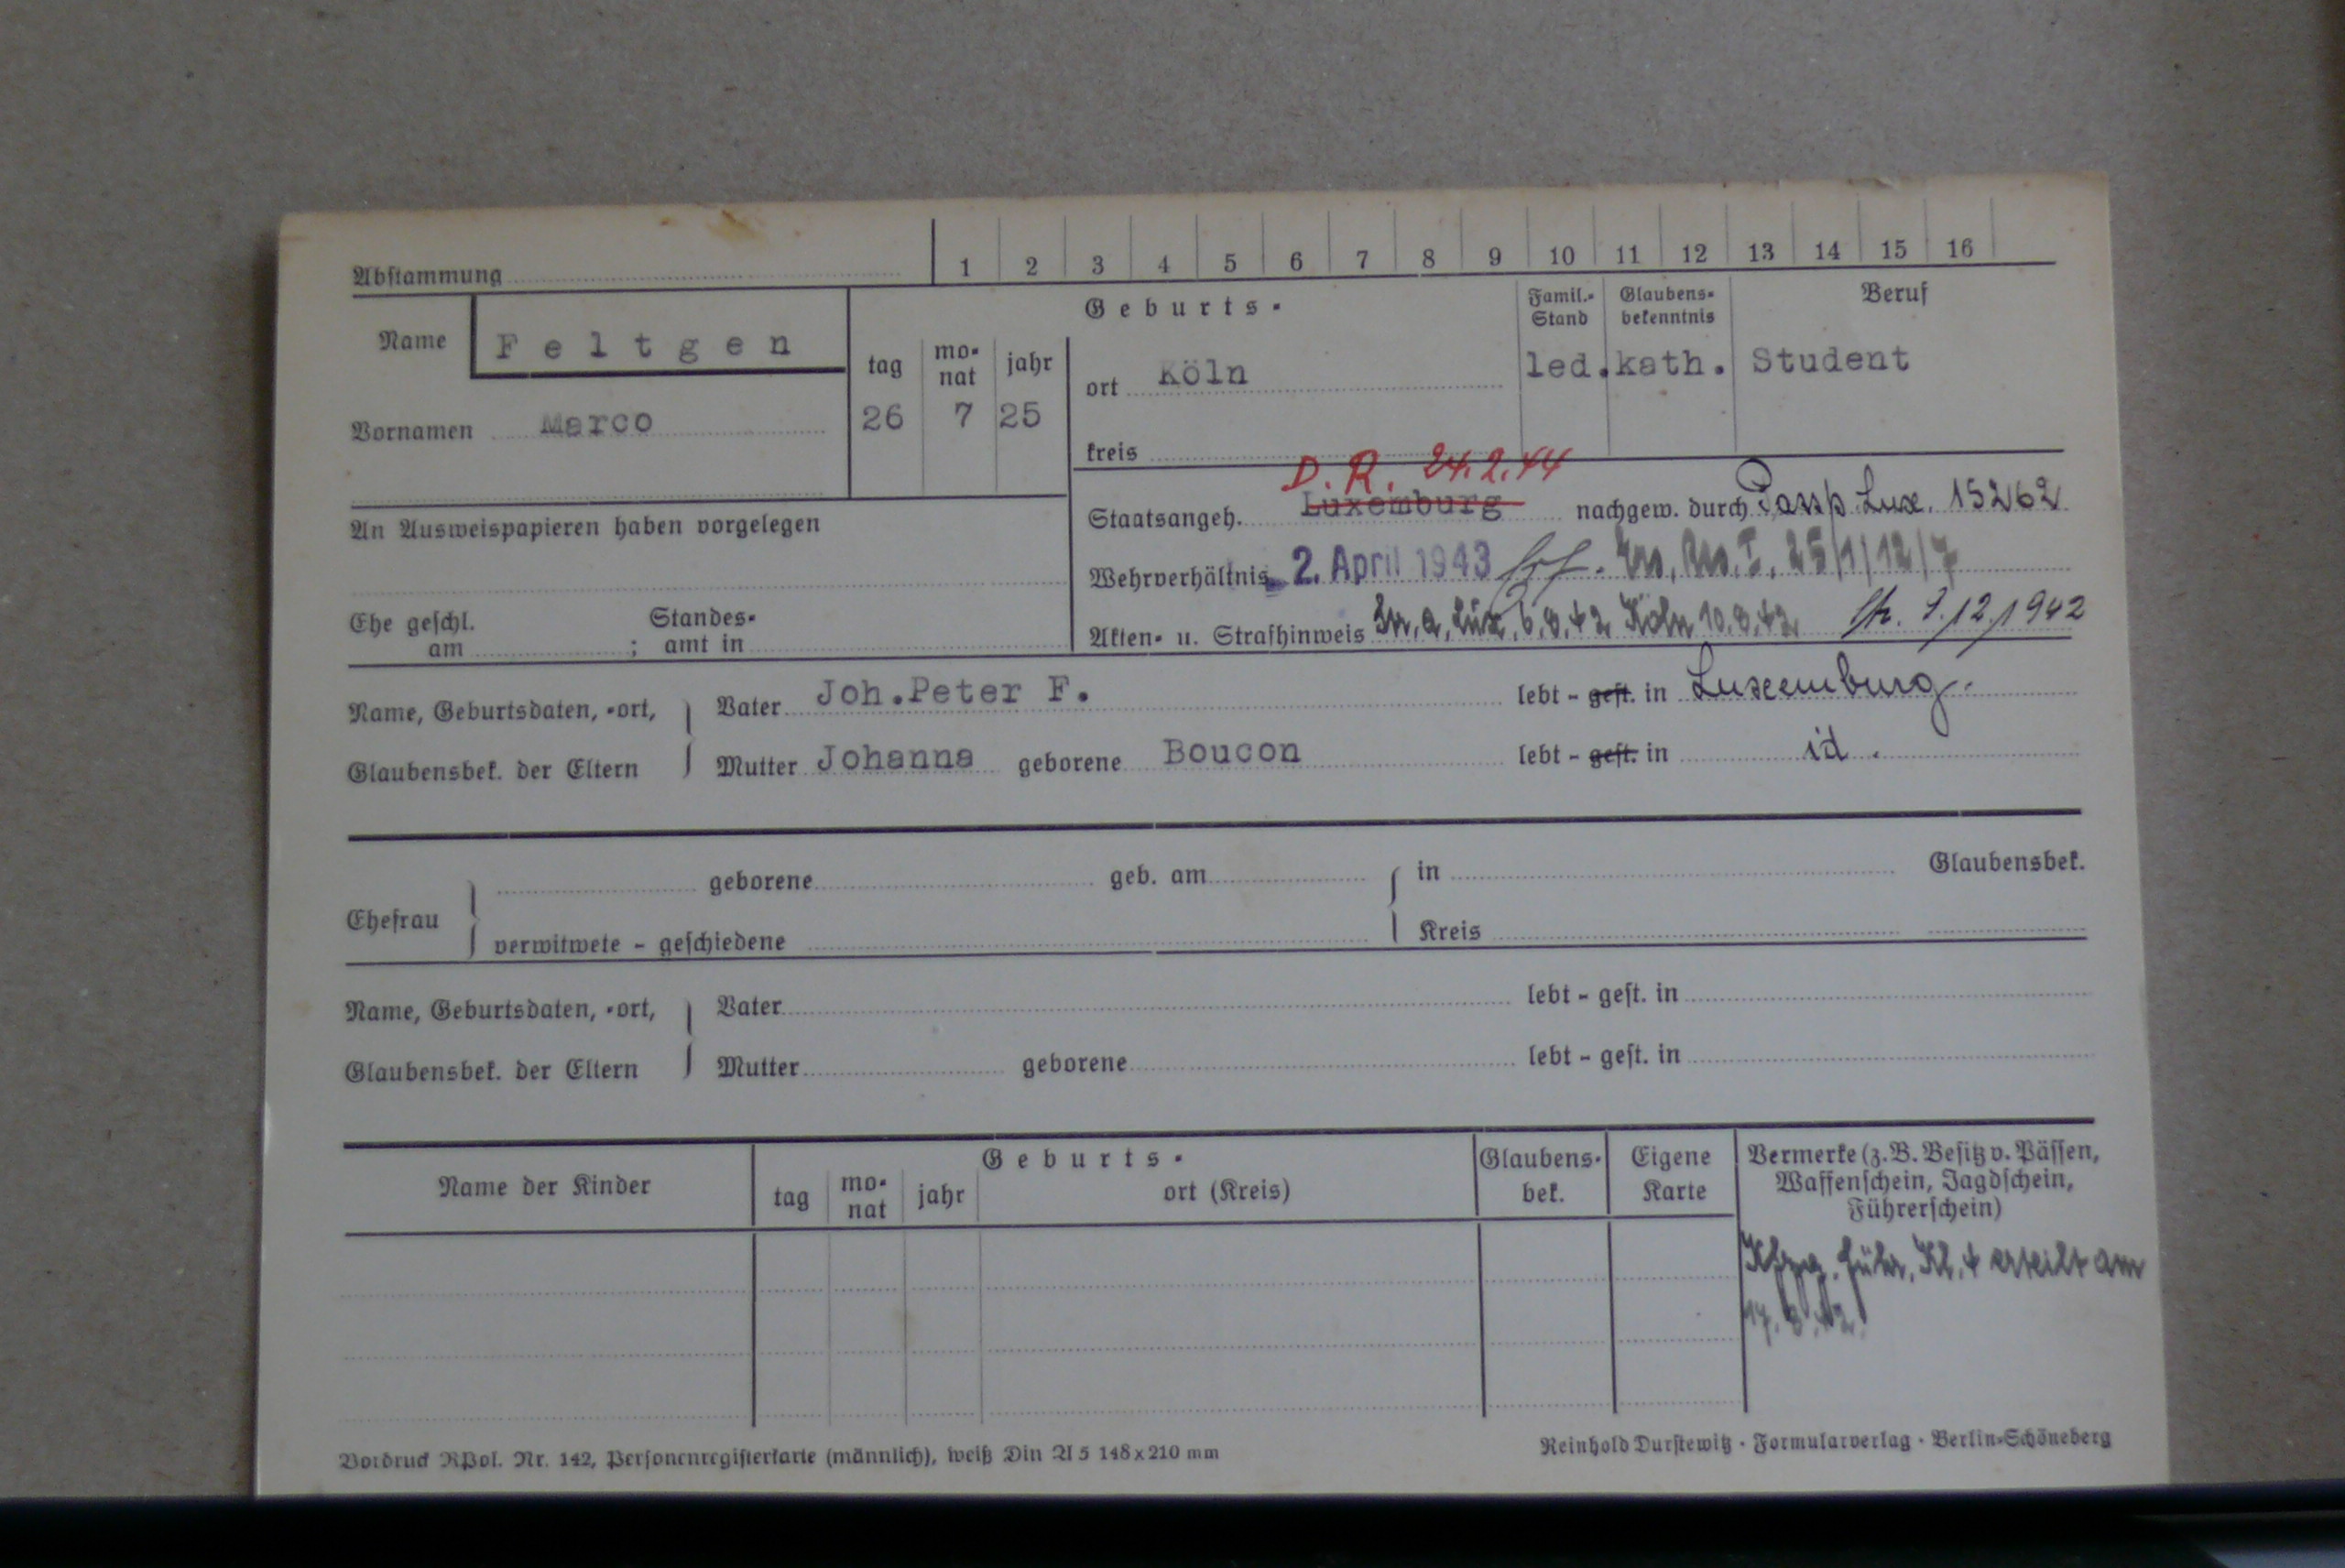 Abstammung 1 2 3 4 5 6 7 8 9 10 11 12 13 14 15 16
Name Feltgen
Geburts-
Famil.-Stand
Glaubens-bekenntnis
Beruf
tag mo-nat jahr
ort Köln
led. kath. Student
Vornamen Marco
26 7 25
kreis
D. R. 24.2.44
Staatsangeh. Luxemburg nachgew. durch Passp. Lux. 15262
An Ausweispapieren haben vorgelegen
Wehrverhältnis 2. April 1943
Ehe geschl. am ; Standes-amt in
Akten- u. Strafhinweis Köln 9/12/1942
Name, Geburtsdaten, -ort,
Glaubensbek. der Eltern
Vater Joh.Peter F. lebt - gest. in Luxemburg.
Mutter Johanna geborene Boucon lebt - gest. in id.
Ehefrau
geborene geb. am in Glaubensbek.
verwitwete - geschiedene Kreis
Name, Geburtsdaten, -ort,
Glaubensbek. der Eltern
Vater lebt - gest. in
Mutter geborene lebt - gest. in
Name der Kinder
Geburts-
tag mo-nat jahr ort (Kreis)
Glaubens-bek.
Eigene Karte
Vermerke (z. B. Besitz v. Pässen,
Waffenschein, Jagdschein,
Führerschein)
Kl. 4 erteilt am
Vordruck RPol. Nr. 142, Personenregisterkarte (männlich), weiß Din A 5 148x210 mm
Reinhold Durstewitz · Formularverlag · Berlin-Schöneberg